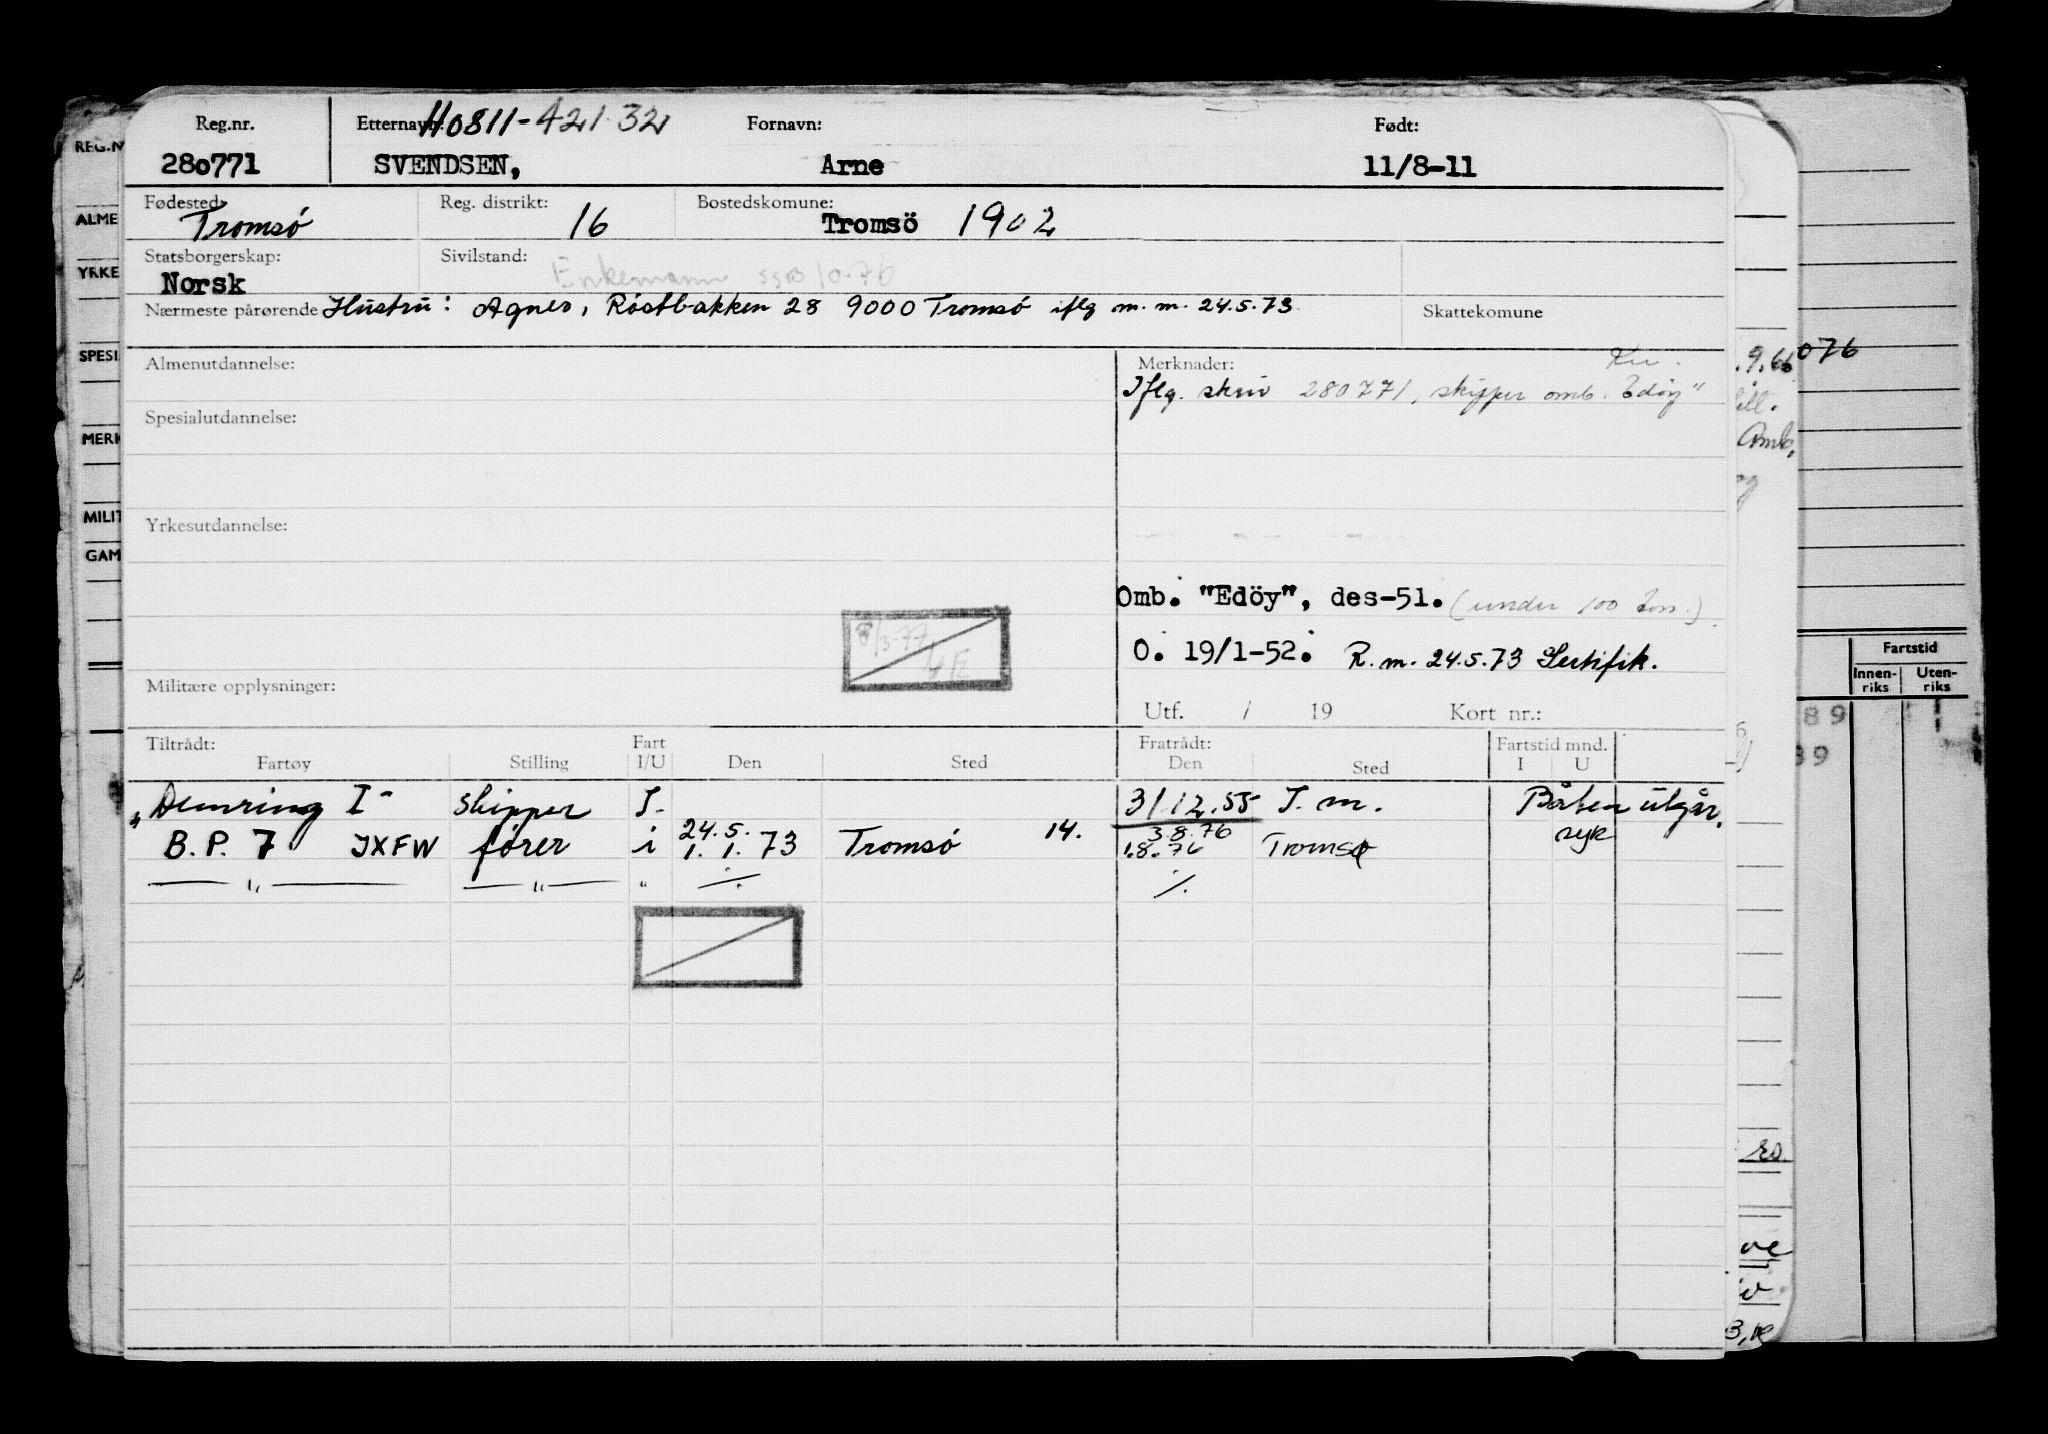 Reg.nr. Etternavn: H0811-42132 Fornavn: Født:
280771 SVENDSEN, Arne 11/8-11
Fødested: Reg. distrikt: Bostedskomune:
Tromsö 16 Tromsö 1902
Statsborgerskap: Sivilstand:
Norsk Enkemann SSB 10.76
Nærmeste pårørende Hustru: Agnes, Röstbakken 28 9000 Tromsö iflg m.m. 24.5.73 Skattekomune
Almenutdannelse: Merknader:
Iflg. skriv 280771, skipper omb. Edöy"
Spesialutdannelse:
Yrkesutdannelse:
Omb. "Edöy", des-51. (under 100 tonn.)
O. 19/1-52. R.m. 24.5.73 Sertifik.
Militære opplysninger:
Utf. / 19 Kort nr.:
Tiltrådt: Fart Fratrådt: Fartstid mnd.
Fartøy Stilling I/U Den Sted Den Sted I U
skipper I. 31.12.55 I.m. Båten utgår.
24.5. 3.8.76 syk
B.P. 7 JXFW fører i 1.1.73 Tromsö 14. 1.8.76 Tromsø
—"— —"— " ./. ./.
REG.N
ALME
YRKE
SPESI
MERK
MILIT
GAM
9.66 076
Omb.
Fartstid
Innen-riks Uten-riks
89
39